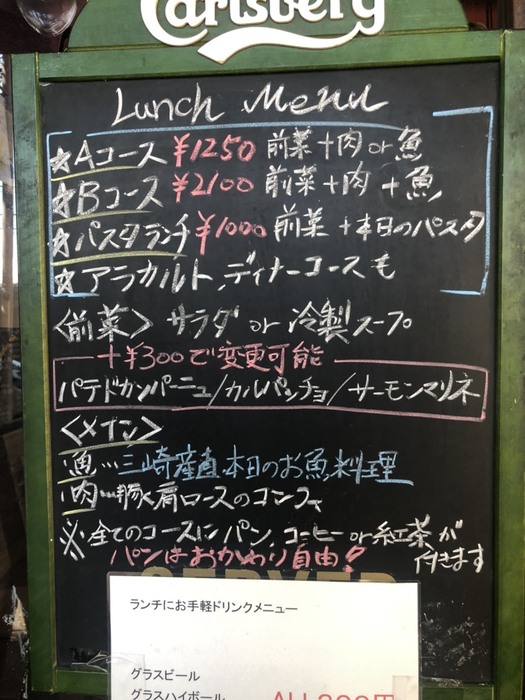 Carlsberg
Lunch Menu
☆Aコース ¥1250 前菜+肉or魚
☆Bコース ¥2100 前菜+肉+魚
☆パスタランチ ¥1000 前菜+本日のパスタ
☆アラカルト、ディナーコースも
〈前菜〉 サラダ or 冷製スープ
+¥300で変更可能
パテドカンパーニュ/カルパッチョ/サーモンマリネ
〈メイン〉
魚…三崎産直本日のお魚料理
肉…豚肩ロースのコンフィ
※全てのコースにパン、コーヒー or 紅茶が
付きます
パンはおかわり自由!
ランチにお手軽ドリンクメニュー
グラスビール
グラスハイボール